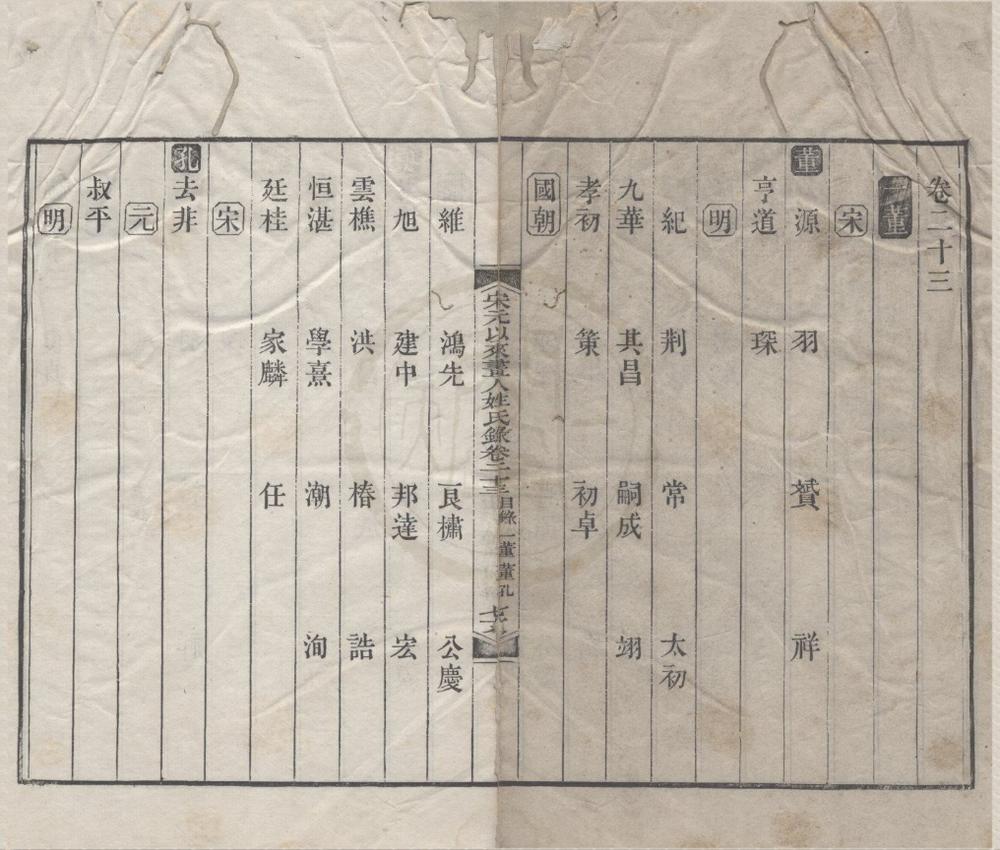 卷二十三
一董
宋
董 源 羽 贇 祥
亨道 琛
明
紀 荆 常 太初
九華 其昌 嗣成 翊
孝初 策 初卓
國朝
宋元以來畫人姓氏錄卷二十三目錄 一董 董 孔
維 鴻先 良櫹 公慶
旭 建中 邦達 宏
雲樵 洪 椿 誥
恒湛 學熹 潮 洵
廷桂 家麟 任
宋
孔 去非
元
叔平
明